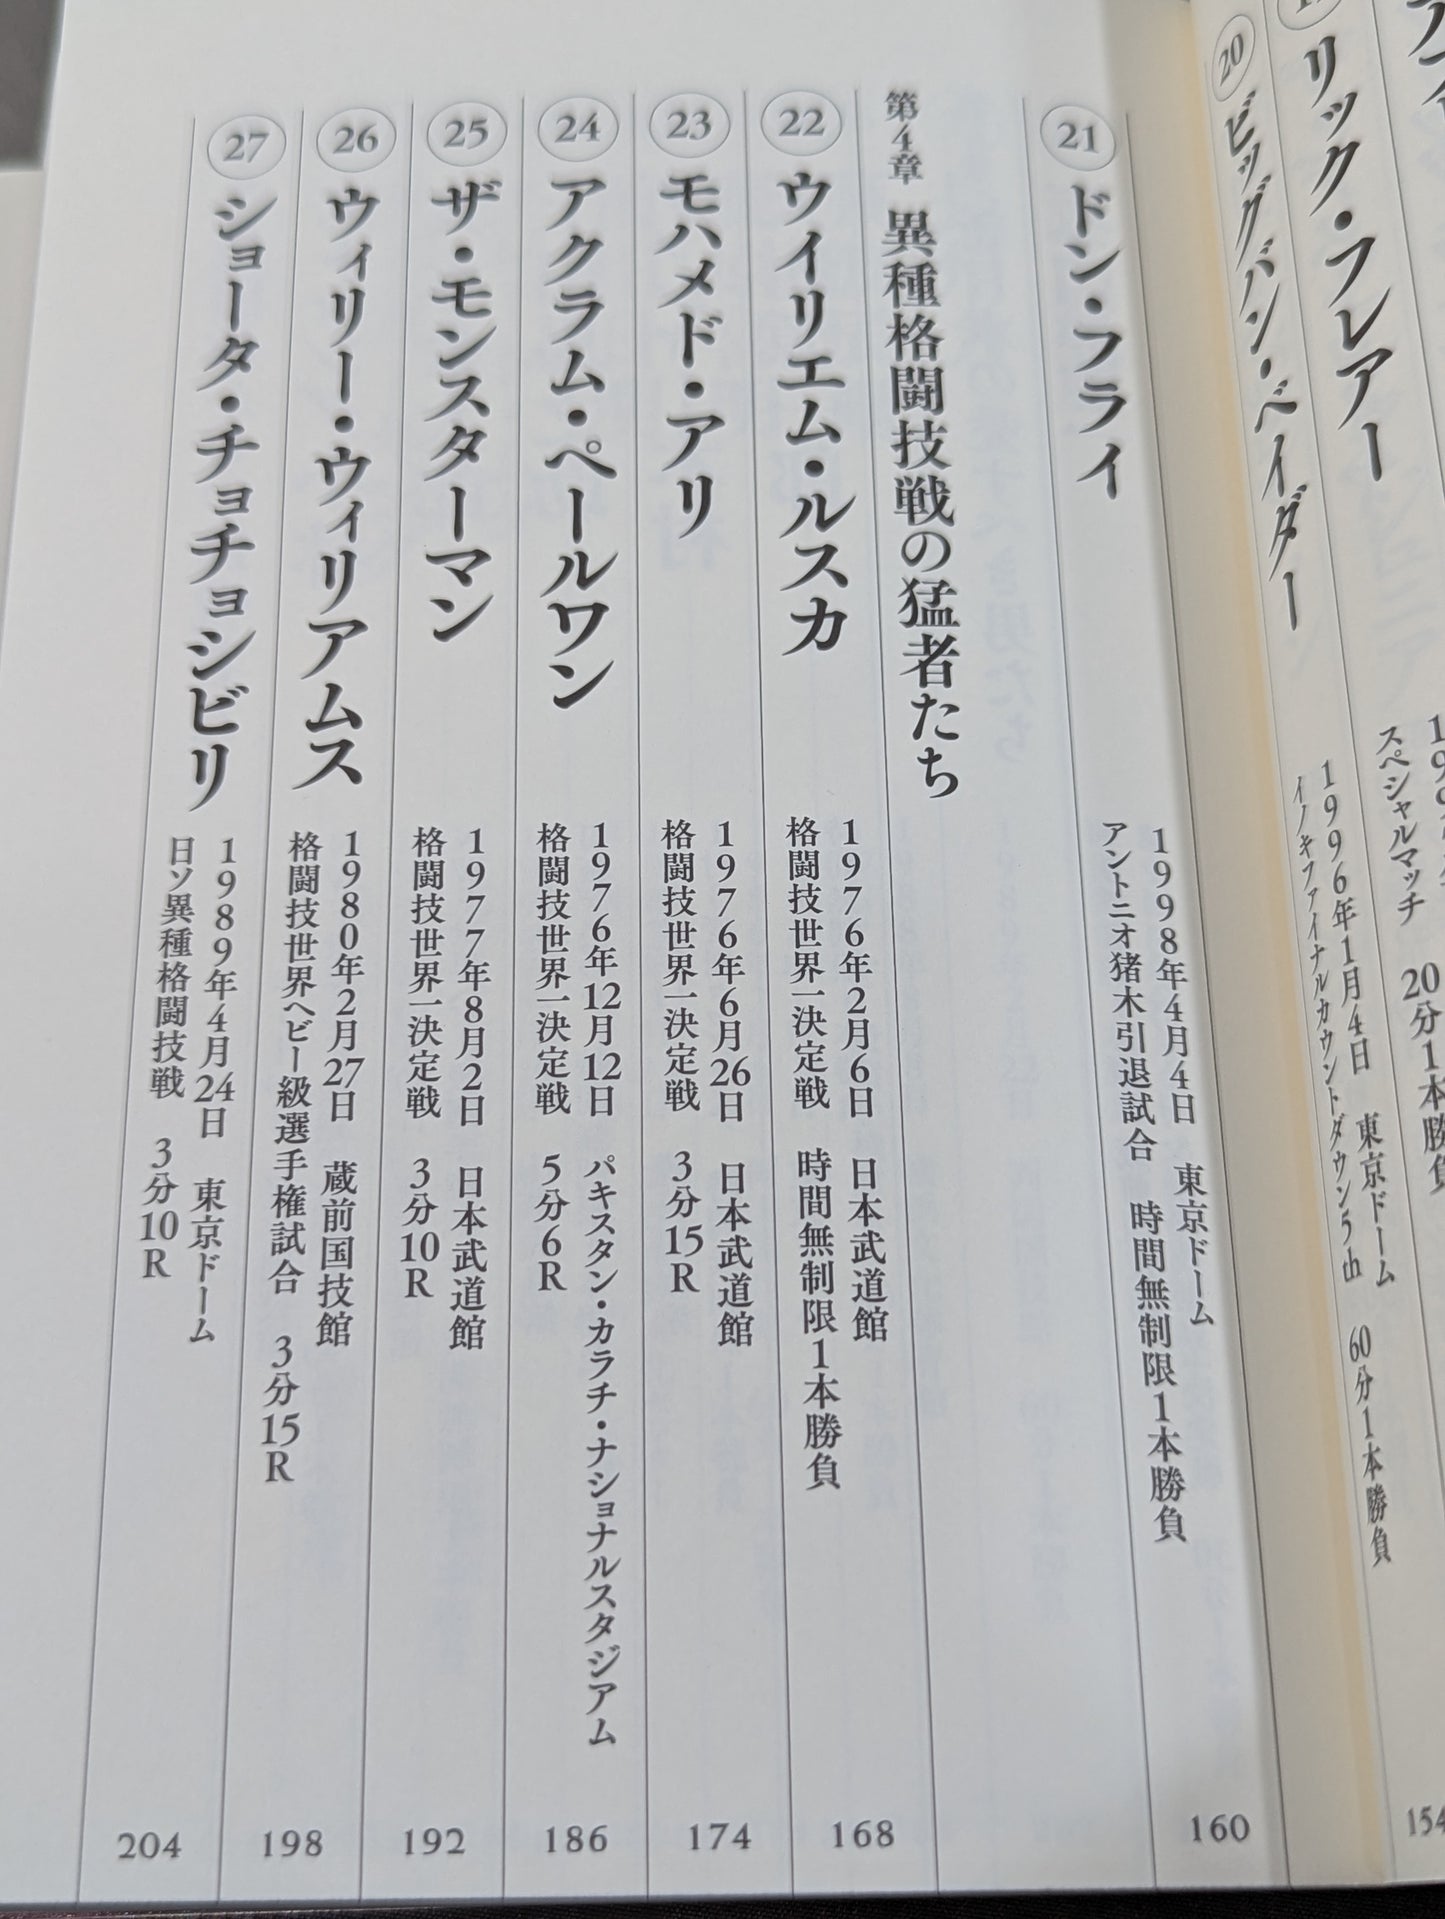 リック・フレアー
スペシャルマッチ　20分1本勝負
154
⑳ ビッグバン・ベイダー
1996年1月4日　東京ドーム
イノキファイナルカウントダウン5th　60分1本勝負
㉑ ドン・フライ
1998年4月4日　東京ドーム
アントニオ猪木引退試合　時間無制限1本勝負
160
第4章　異種格闘技戦の猛者たち
㉒ ウイリエム・ルスカ
1976年2月6日　日本武道館
格闘技世界一決定戦　時間無制限1本勝負
168
㉓ モハメド・アリ
1976年6月26日　日本武道館
格闘技世界一決定戦　3分15R
174
㉔ アクラム・ペールワン
1976年12月12日　パキスタン・カラチ・ナショナルスタジアム
格闘技世界一決定戦　5分6R
186
㉕ ザ・モンスターマン
1977年8月2日　日本武道館
格闘技世界一決定戦　3分10R
192
㉖ ウィリー・ウィリアムス
1980年2月27日　蔵前国技館
格闘技世界ヘビー級選手権試合　3分15R
198
㉗ ショータ・チョチョシビリ
1989年4月24日　東京ドーム
日ソ異種格闘技戦　3分10R
204